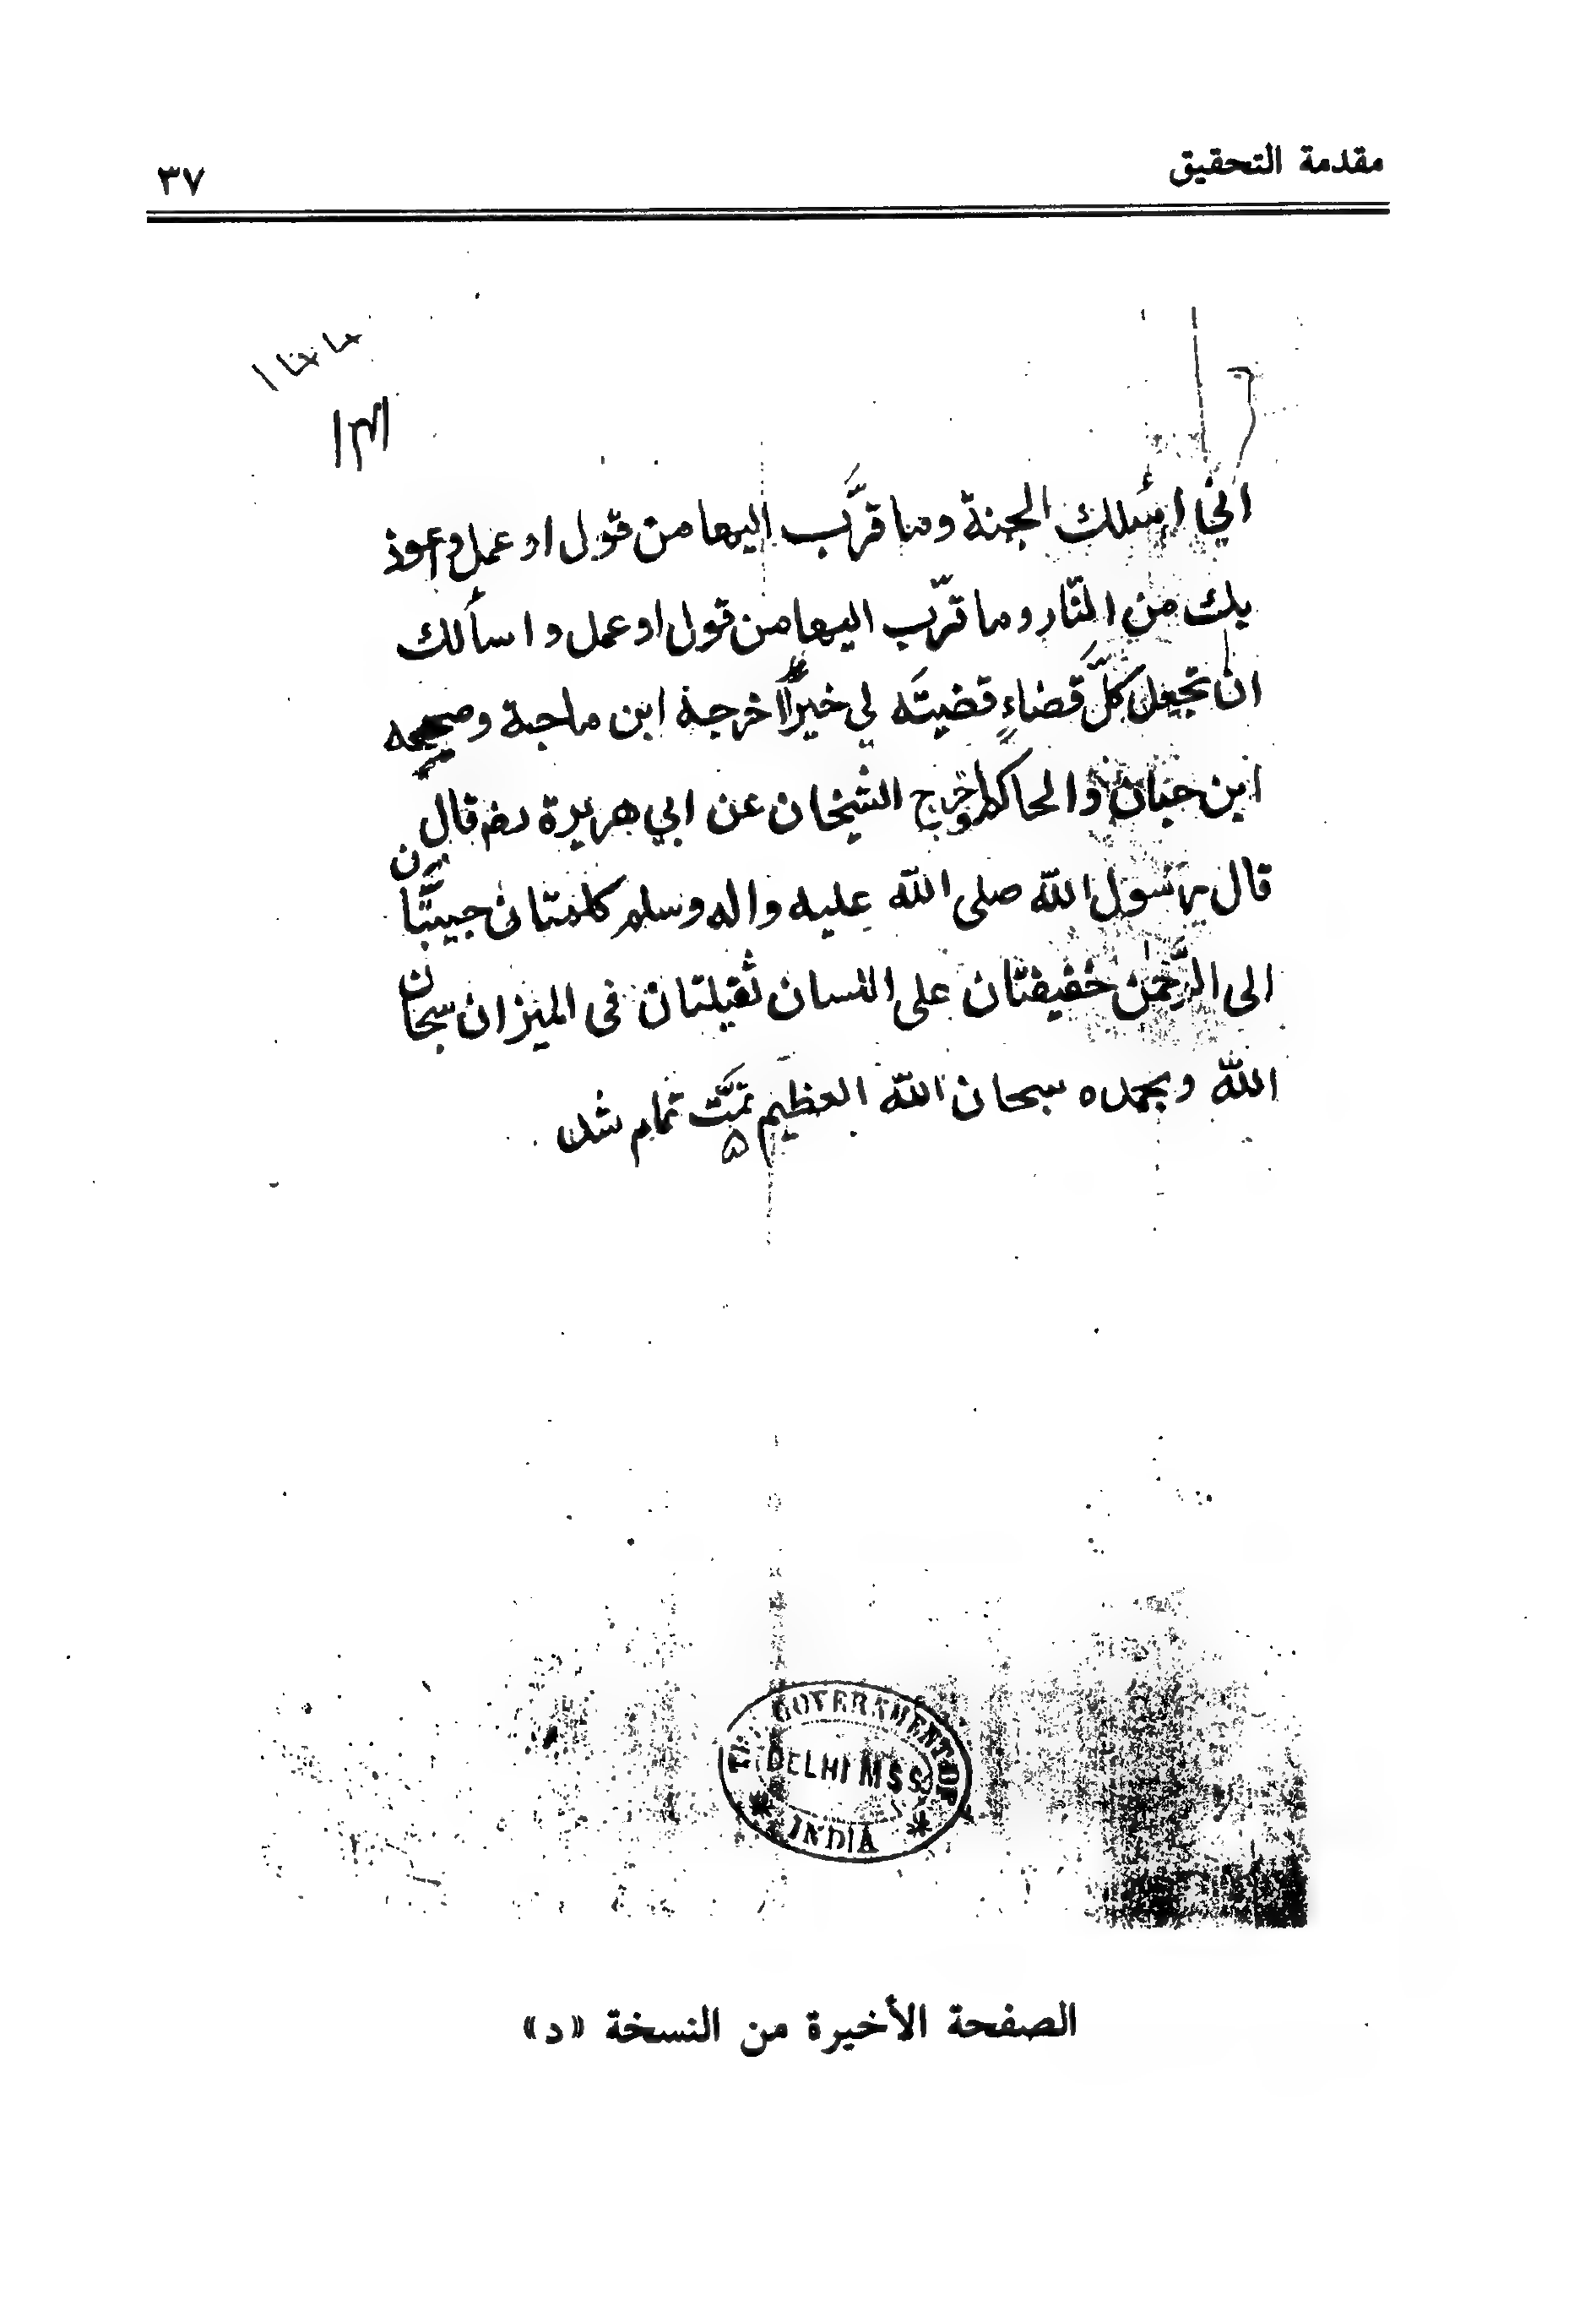 مقدمة التحقيق
٣٧
اني اسٔلك الجنة وما قرَّب اليها من قول او عمل واعوذ
بك من النّار وما قرّب اليها من قول او عمل و اسألك
ان تجعل كلَّ قضاءٍ قضيتَه لي خيرًا اخرجة ابن ماجة وصححه
ابن حبان والحاكم واخرج الشيخان عن ابي هريرة رضـ قال
قال رسول الله صلى الله عليه واله وسلم كلمتان حبيبتان
الى الرَّحمن خفيفتان على اللسان ثقيلتان فى الميزان سبحان
الله وبحمده سبحان الله العظيم تمَّت تمام شد
THE GOVERNMENT OF
DELHI MSS.
INDIA
الصفحة الأخيرة من النسخة «د»